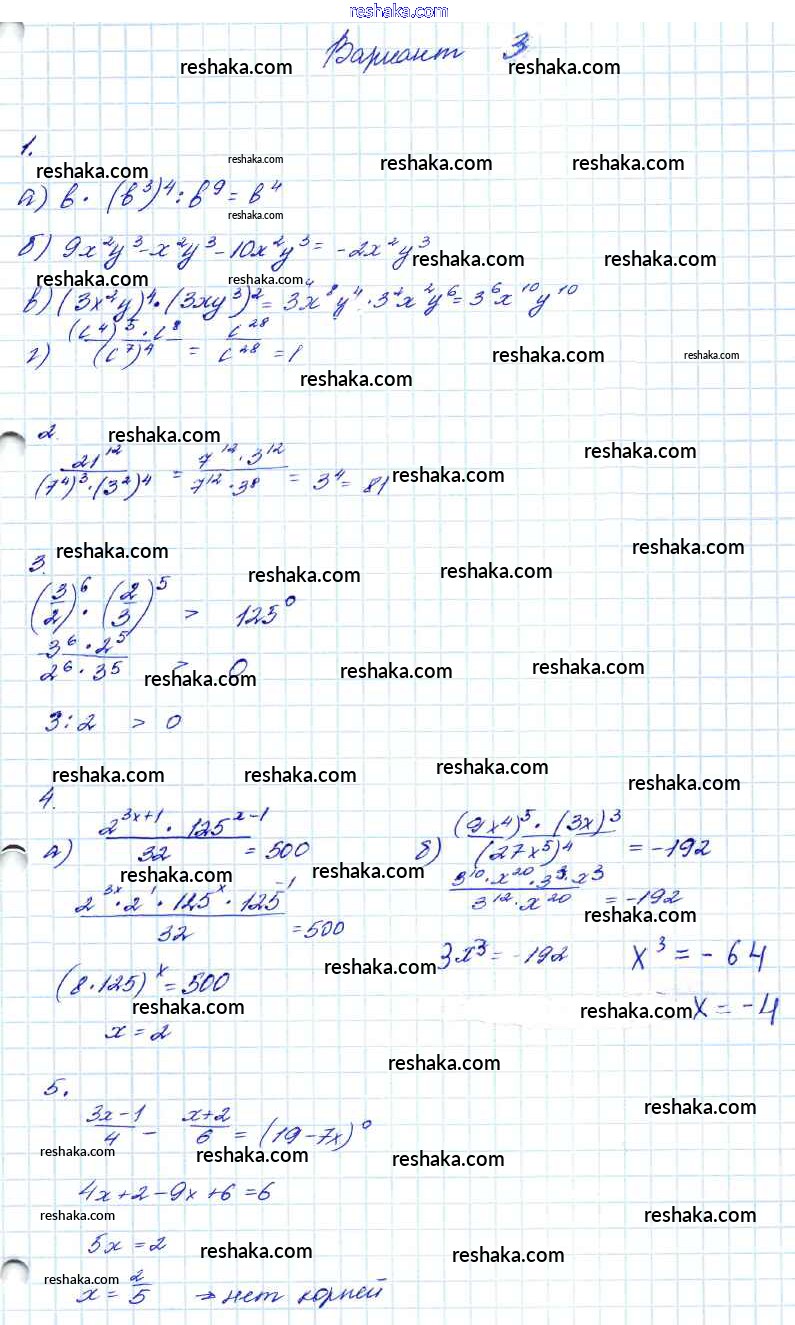 reshaka.com
Вариант 3
reshaka.com reshaka.com
1.
reshaka.com reshaka.com reshaka.com reshaka.com
а) b · (b³)⁴ : b⁹ = b⁴
reshaka.com
б) 9x²y³ - x²y³ - 10x²y³ = -2x²y³
reshaka.com reshaka.com
reshaka.com reshaka.com
в) (3x²y)⁴ · (3xy³)² = 3⁴x⁸y⁴ · 3²x²y⁶ = 3⁶x¹⁰y¹⁰
г) (c⁴)⁵ · c⁸ / (c⁷)⁴ = c²⁸ / c²⁸ = 1
reshaka.com reshaka.com
reshaka.com
2.
reshaka.com reshaka.com
21¹² / (7⁴)³ · (3²)⁴ = 7¹² · 3¹² / 7¹² · 3⁸ = 3⁴ = 81
reshaka.com
3.
reshaka.com reshaka.com
reshaka.com reshaka.com
(3/2)⁶ · (2/3)⁵ > 125⁰
3⁶ · 2⁵ / 2⁶ · 3⁵ > 0
reshaka.com reshaka.com reshaka.com
3 : 2 > 0
reshaka.com reshaka.com reshaka.com reshaka.com
4.
а) 2³ˣ⁺¹ · 125ˣ⁻¹ / 32 = 500
б) (9x⁴)⁵ · (3x)³ / (27x⁵)⁴ = -192
reshaka.com reshaka.com
2³ˣ · 2¹ · 125ˣ · 125⁻¹ / 32 = 500
3¹⁰ · x²⁰ · 3³ · x³ / 3¹² · x²⁰ = -192
reshaka.com
3x³ = -192 x³ = -64
reshaka.com
(8 · 125)ˣ = 500
reshaka.com reshaka.com
x = -4
x = 2
reshaka.com
5.
reshaka.com
3x-1 / 4 - x+2 / 6 = (19-7x)⁰
reshaka.com reshaka.com reshaka.com
4x + 2 - 9x + 6 = 6
reshaka.com reshaka.com
5x = 2
reshaka.com reshaka.com
reshaka.com
x = 2/5 → нет корней